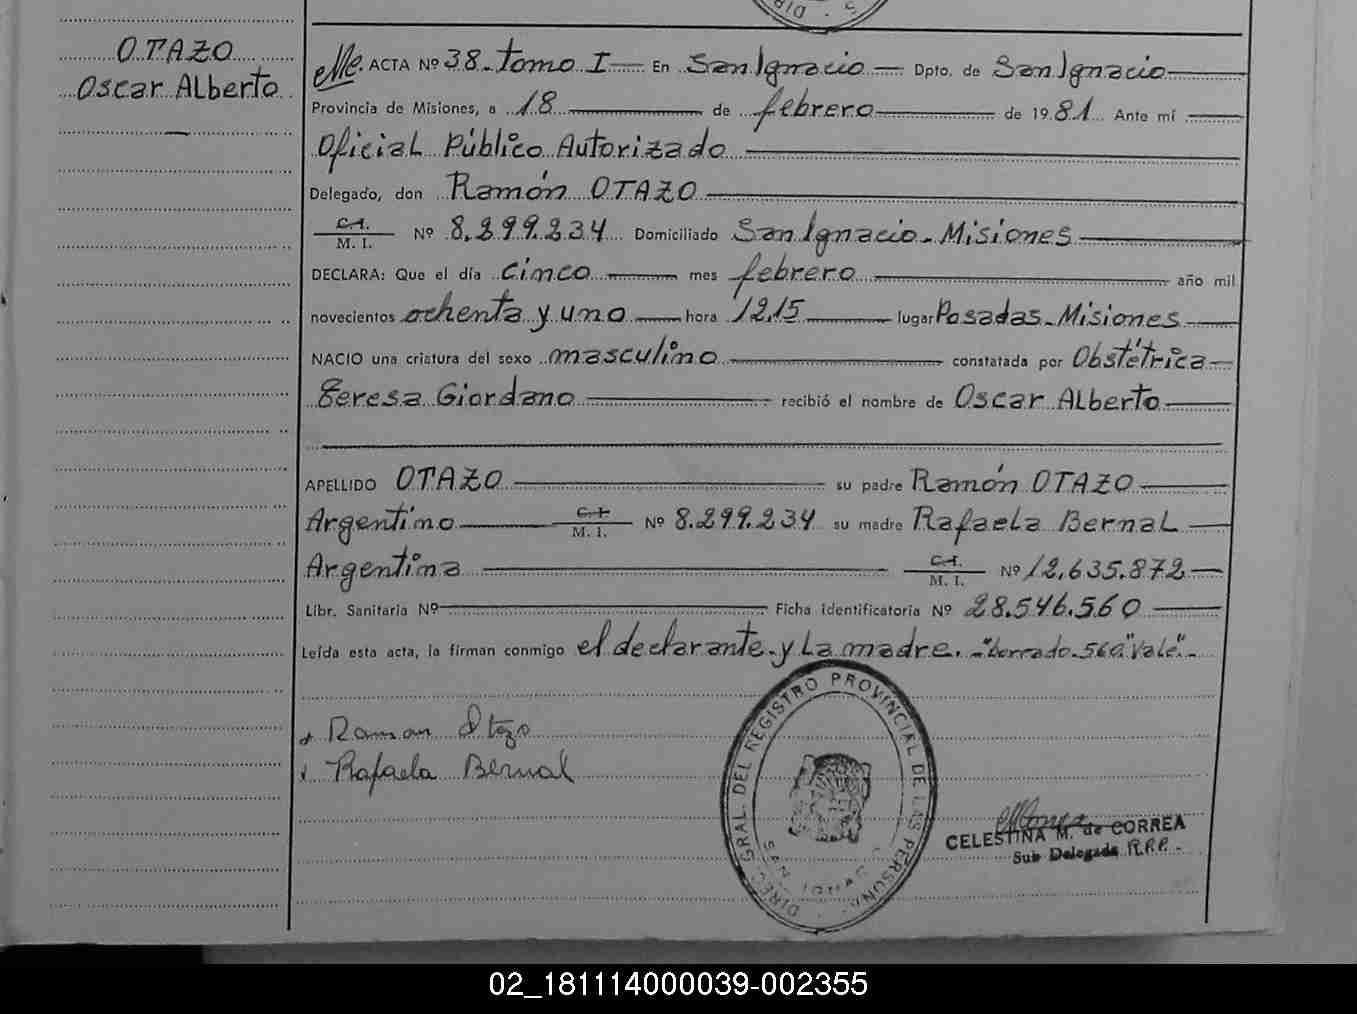 OTAZO
Oscar Alberto
ACTA Nº 38. tomo I — En San Ignacio — Dpto. de San Ignacio
Provincia de Misiones, a 18 de febrero de 1981. Ante mí
Oficial Público Autorizado
Delegado, don Ramón OTAZO
C.I.
M. I. Nº 8.299.234 Domiciliado San Ignacio - Misiones
DECLARA: Que el día cinco mes febrero año mil
novecientos ochenta y uno hora 12,15 lugar Posadas - Misiones
NACIO una criatura del sexo masculino constatada por Obstétrica
Teresa Giordano recibió el nombre de Oscar Alberto
APELLIDO OTAZO su padre Ramón OTAZO
Argentino C.I. M. I. Nº 8.299.234 su madre Rafaela Bernal
Argentina C.I. M. I. Nº 12.635.872
Libr. Sanitaria Nº Ficha identificatoria Nº 28.546.560
Leída esta acta, la firman conmigo el declarante y la madre. - "borrado 560" Vale". -
Ramon Otazo
Rafaela Bernal
DIREC. GRAL. DEL REGISTRO PROVINCIAL DE LAS PERSONAS
SAN IGNACIO
CELESTINA M. de CORREA
Sub Delegada R.P.P.
02_181114000039-002355